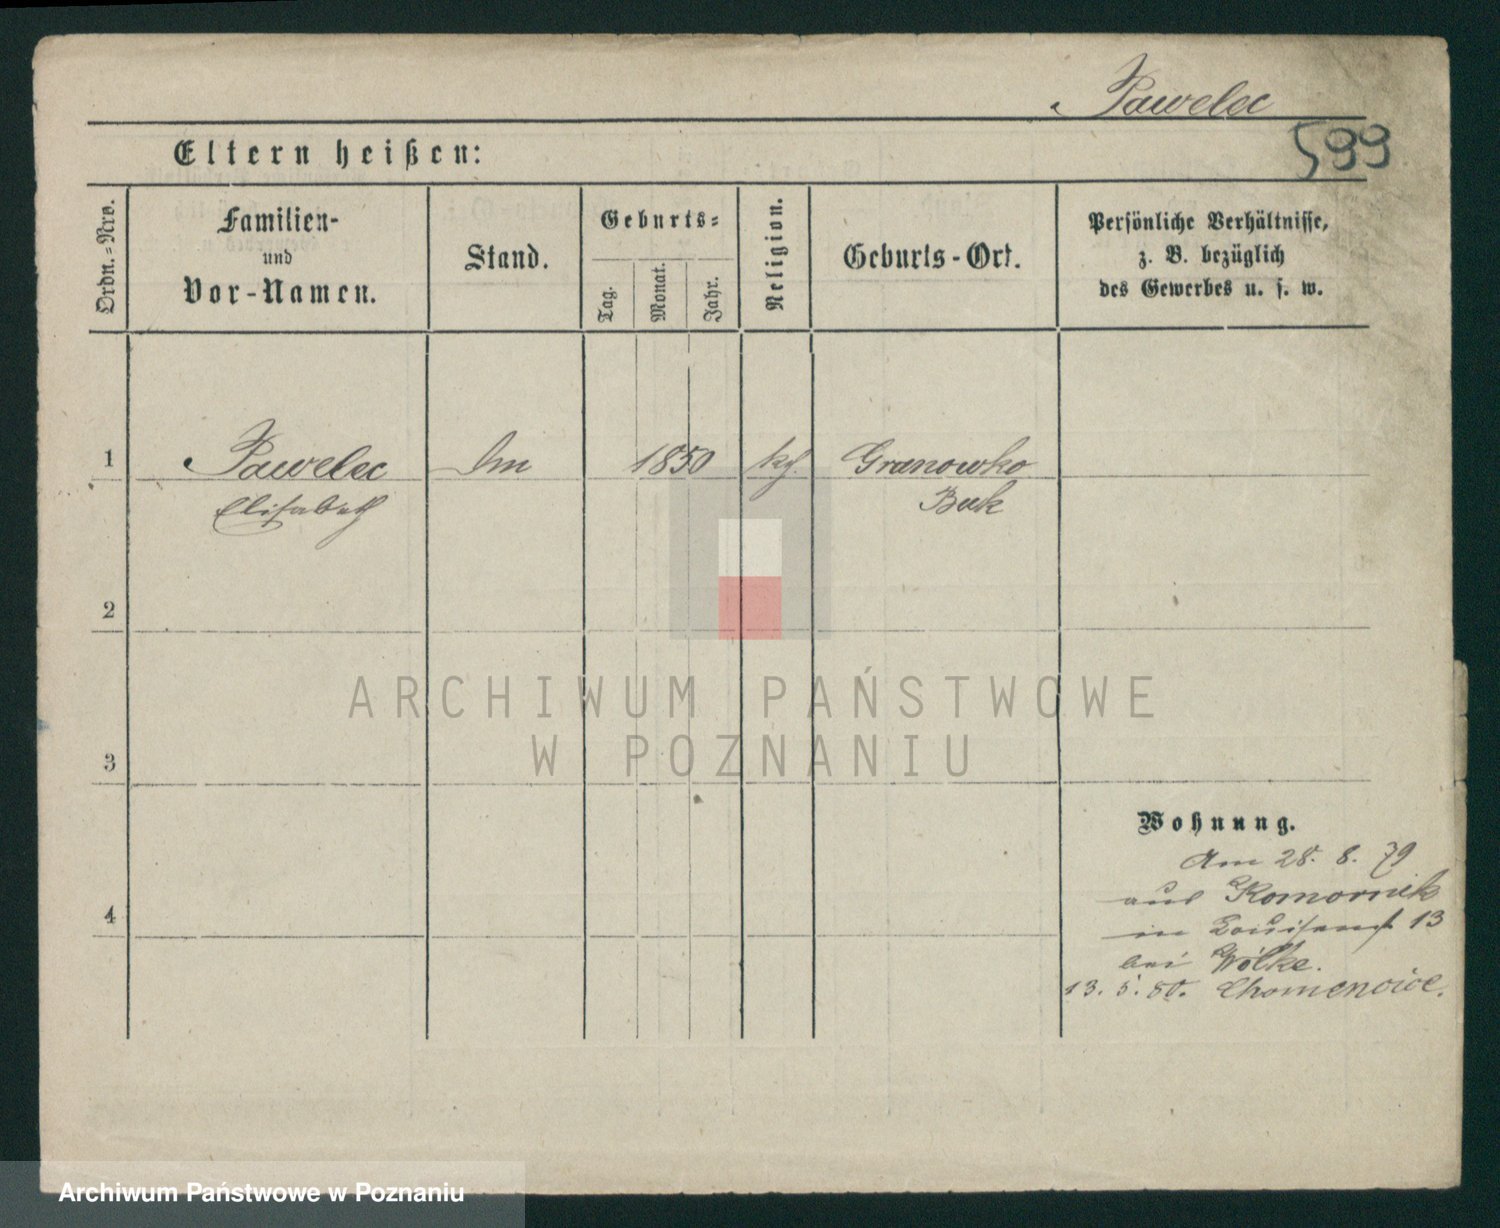 Pawelec
599
Eltern heißen:
Ordn.-Nro.
Familien-
und
Vor-Namen.
Stand.
Geburts-
Tag.
Monat.
Jahr.
Religion.
Geburts-Ort.
Persönliche Verhältnisse,
z. B. bezüglich
des Gewerbes u. s. w.
1 Pawelec 1850 Granowko
Elisabeth Buk
2
3
4
Wohnung.
Am 28. 8. 79
aus Komornik
in 13
bei Wölke.
13. 5. 80. Chomencice.
ARCHIWUM PAŃSTWOWE
W POZNANIU
Archiwum Państwowe w Poznaniu